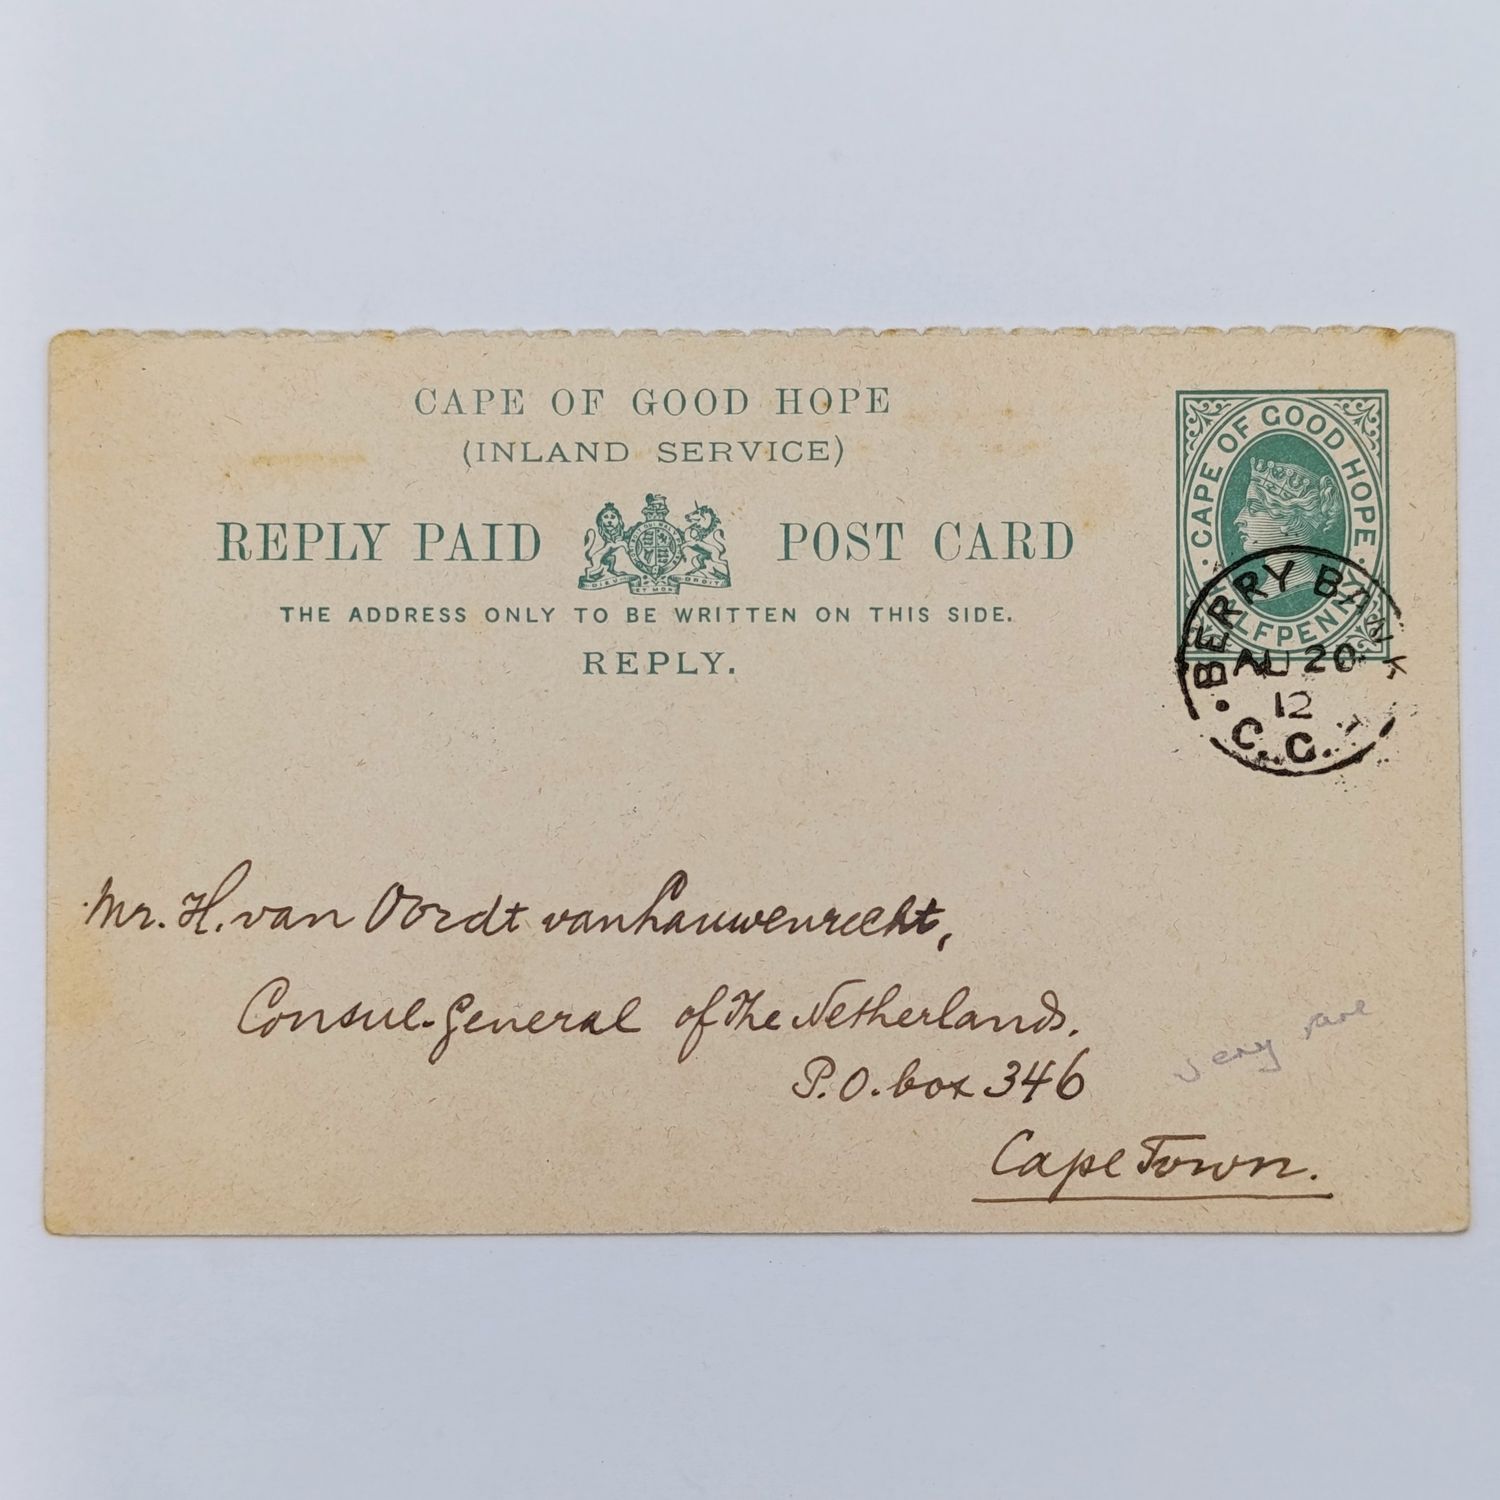 CAPE OF GOOD HOPE
(INLAND SERVICE)
REPLY PAID POST CARD
THE ADDRESS ONLY TO BE WRITTEN ON THIS SIDE.
REPLY.
CAPE OF GOOD HOPE
HALFPENNY
BERRY BANK
AU 20
12
C.C.
Mr. H. van Oordt van Lauwenrecht,
Consul-General of The Netherlands.
P.O. box 346
very rare
Cape Town.